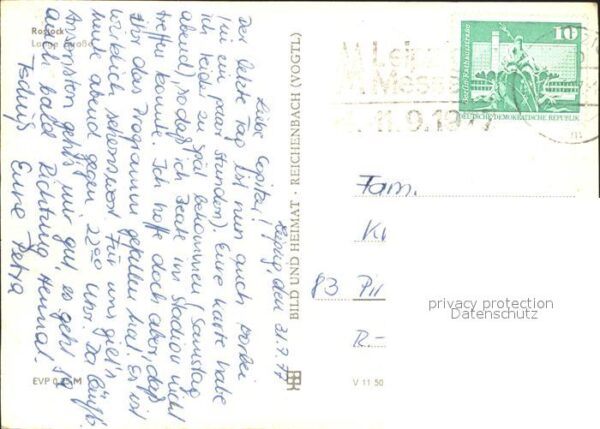 Rostock
Lange Straße
Leipzig, den 31.7.77
Liebe
Der letzte Tag ist nun auch vorbei
(in ein paar Stunden). Eure Karte habe
ich leider zu spät bekommen (Samstag
abend), so daß ich Beate im Stadion nicht
treffen konnte. Ich hoffe doch aber, daß
ihr das Programm gefallen hat. Es ist
wirklich sehenswert. Für uns gilt's
heute abend gegen 22.00 Uhr. Da läuft's
Ansonsten geht's mir gut, es geht ja
auch bald Richtung Heimat.
Tschüß Eure Petra
EVP 0,25 M
BILD UND HEIMAT · REICHENBACH (VOGTL)
V 11 50
Leipz
Messe
4.-11.9.1977
10
Berlin, Rathausstraße
DEUTSCHE DEMOKRATISCHE REPUBLIK
Fam.
83 Pir
privacy protection
Datenschutz